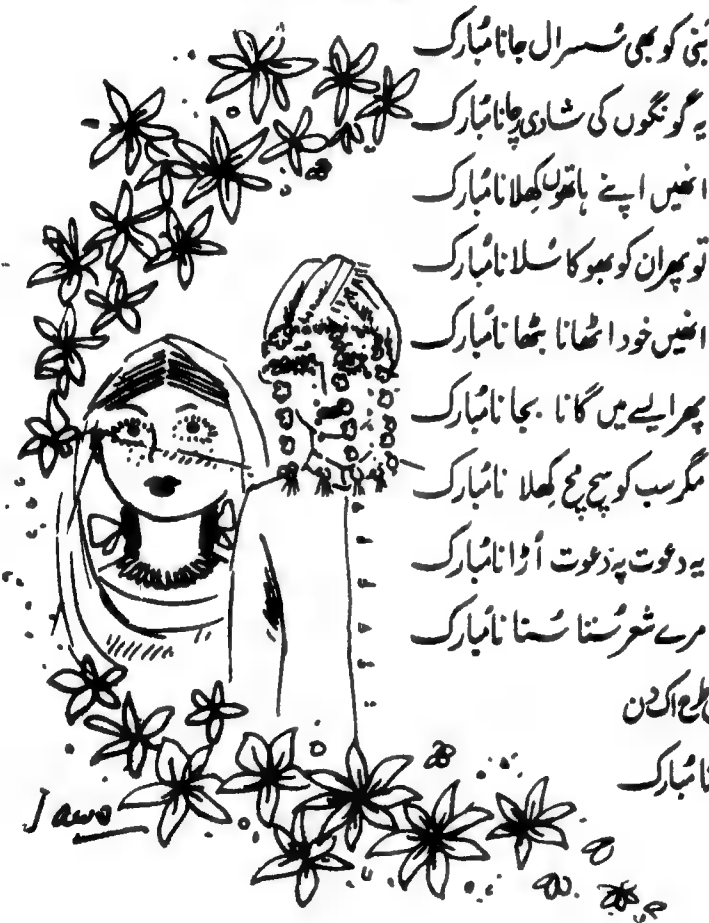 بنی کو بھی سُسرال جانا مُبارک
یہ گونگوں کی شادی رچانا مُبارک
انھیں اپنے ہاتھوں کھلانا مُبارک
تو پھر ان کو بھوکا سُلانا مُبارک
انھیں خود اٹھانا بٹھانا مُبارک
پھر ایسے میں گانا بجانا مُبارک
مگر سب کو سچ مچ کھلانا مُبارک
یہ دعوت پہ دعوت اُڑانا مُبارک
مرے شعر سُننا سُنانا مُبارک
طرح اک دن
نا مُبارک